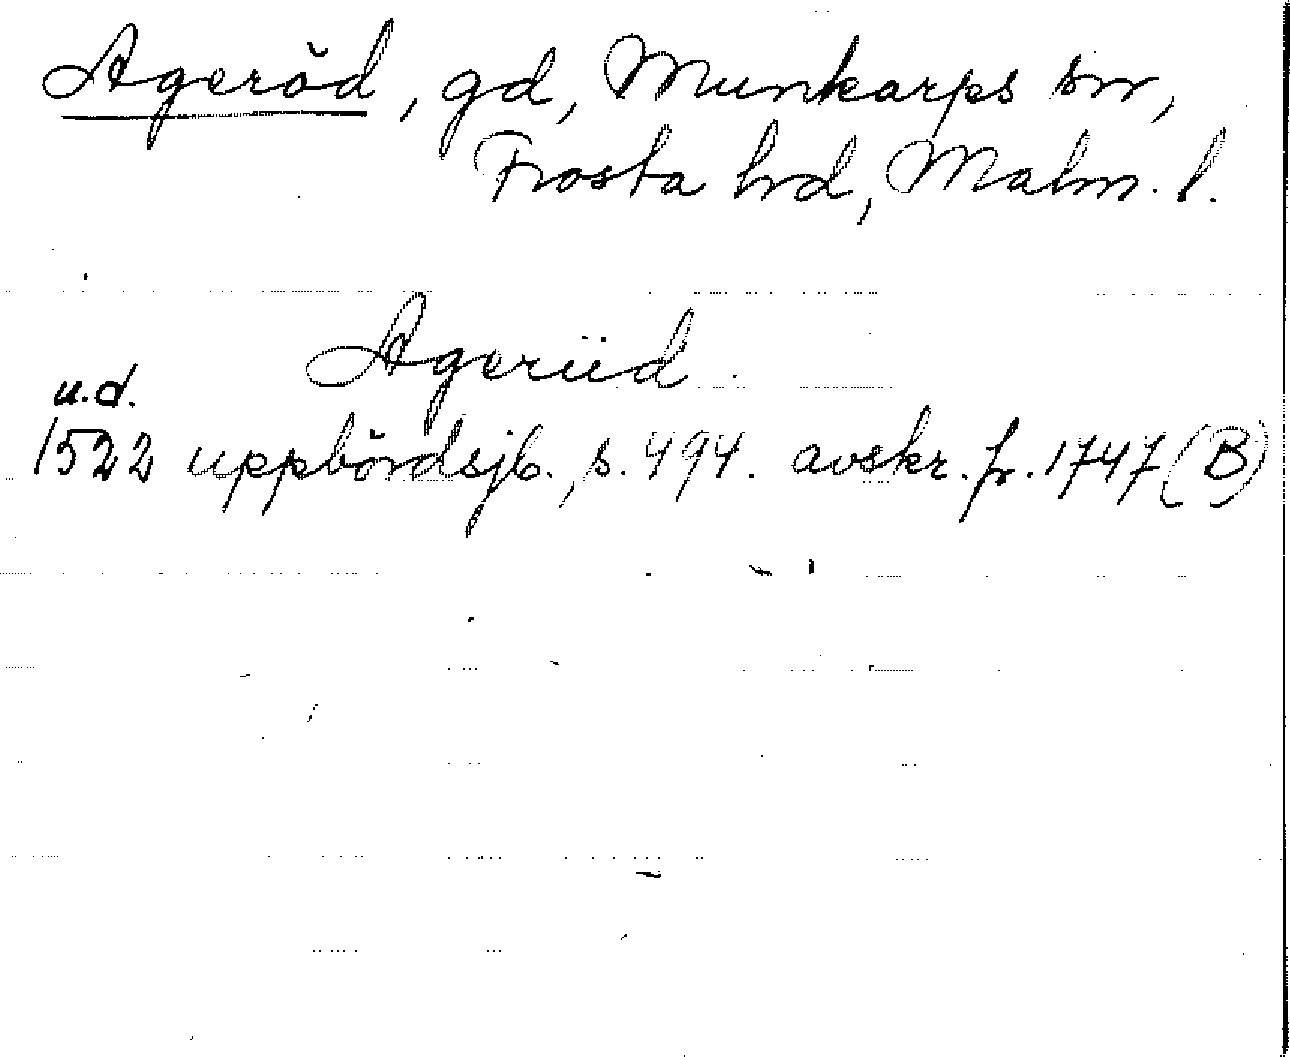 Ageröd, gd, Munkarps sn,
Frosta hd, Malm. l.
Agerüd
u.d.
1522 uppbördsjb., s. 494. avskr. fr. 1747 (B)